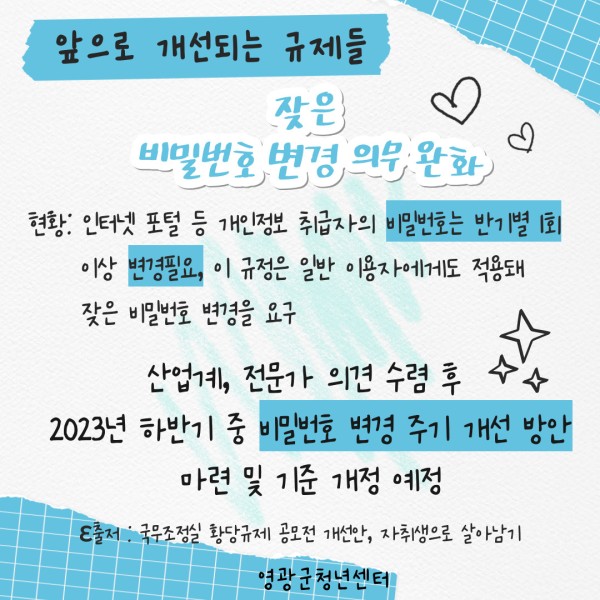 앞으로 개선되는 규제들
잦은
비밀번호 변경 의무 완화
현황: 인터넷 포털 등 개인정보 취급자의 비밀번호는 반기별 1회
이상 변경필요, 이 규정은 일반 이용자에게도 적용돼
잦은 비밀번호 변경을 요구
산업계, 전문가 의견 수렴 후
2023년 하반기 중 비밀번호 변경 주기 개선 방안
마련 및 기준 개정 예정
출저 : 국무조정실 황당규제 공모전 개선안, 자취생으로 살아남기
영광군청년센터